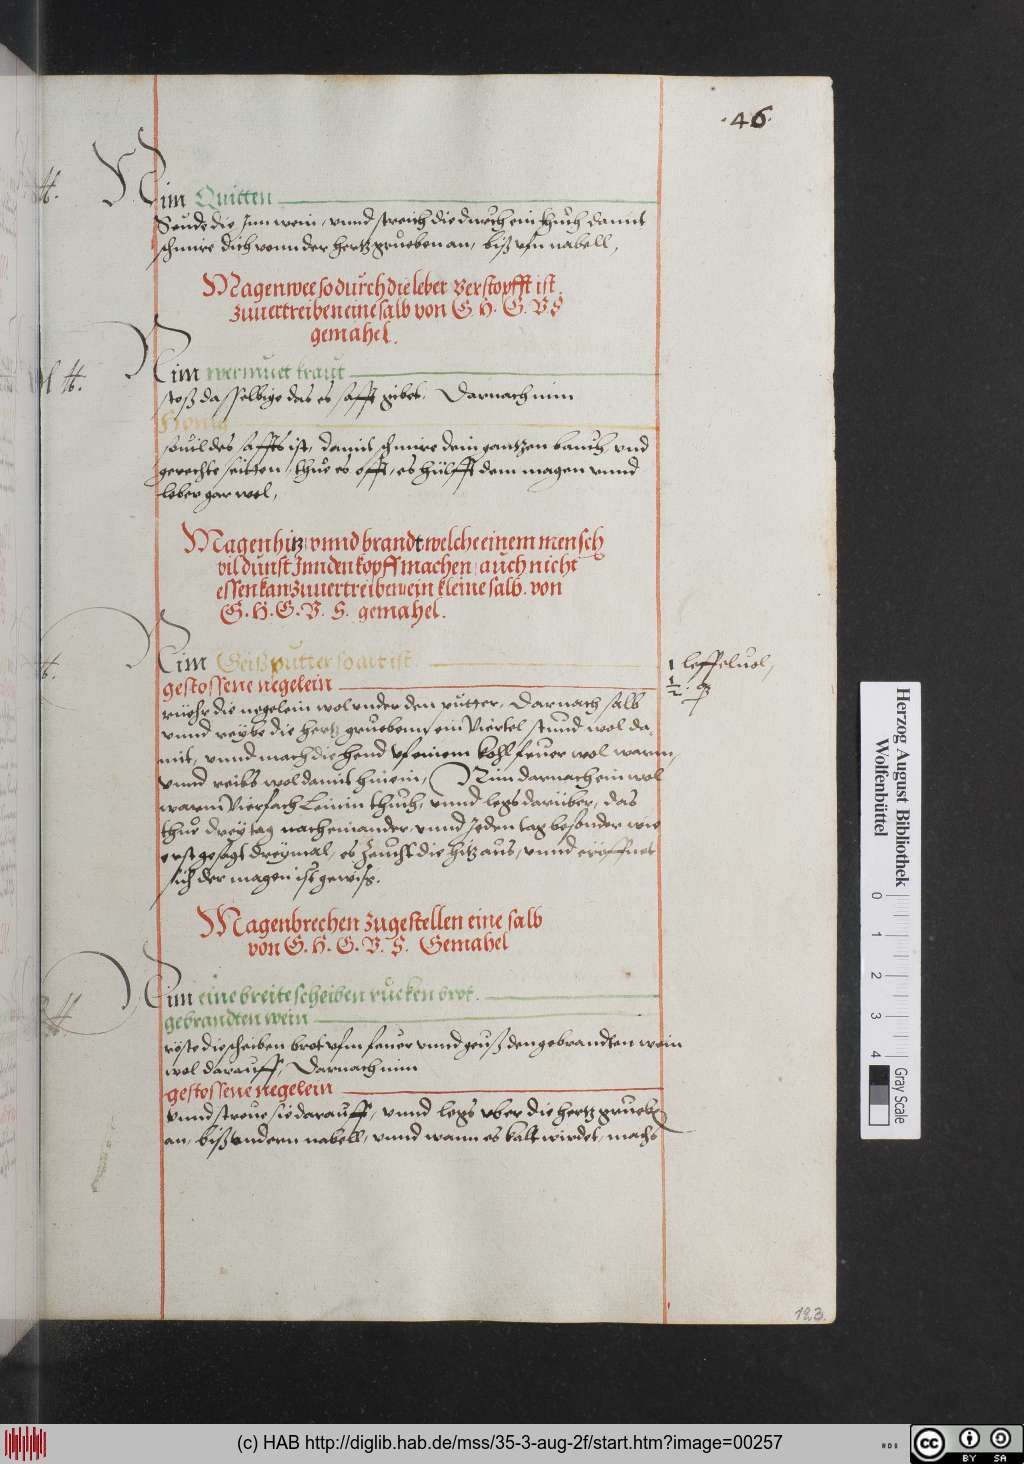 .46.
Nim Quitten
Seude die Inn wein, vnnd streich die durch ein thuch damit
schmire dich vonn der hertzgrueben an, biß vfn nabell,
Magenwee so durch die leber Verstopfft ist
zuuertreiben eine salb von G. H. G. V S
gemahel.
Nim wermuet kraut
stoß dasselbige das es safft gibet. Darnach nim
Honig
souil des saffts ist, damit schmire dein gantzen bauch vnd
gerechte seitten, thue es offt, es hülfft dem magen vnnd
leber gar wol,
Magenhitz vnnd brandt welche einem mensch
vil dunst Inn den kopff machen, auch nicht
essen kan zuuertreiben ein kleine salb. von
G. H. G. V. S. gemahel.
Nim Geiß putter so alt ist 1 leffeluol,
gestossene negelein 1/2
rüehr die negelein wol vnder den putter, Darnach salb
vnnd reybe die hertzgruebenn ein Viertel stund wol da-
mit, vnnd mach die hend vf einem kohlfeuer wol warm,
vnnd reibs wol damit hinein, Nim darnach ein wol
warem Vierfach Leinin thuch, vnnd legs darüber, das
thue drey tag nach einander, vnnd Jeden tag besonder wie
erst gesagt dreymal, es Zeucht die hitz aus, vnnd eröffnet
sich der magen ist gewiß.
Magenbrechen zugestellen eine salb
von G. H. G. V. S. Gemahel
Nim eine breite scheiben rucken brot.
gebrandten wein
röste die scheiben brot vfm feuer vnnd geuß den gebrandten wein
wol darauff, Darnach nim
gestossene negelein
vnnd streue sie darauff, vnnd legs vber die hertzgrueben
an, biß vndern nabell, vnnd wann es kalt wirdet, machs
123.
Herzog August Bibliothek
Wolfenbüttel
0 1 2 3 4
Gray Scale
(c) HAB http://diglib.hab.de/mss/35-3-aug-2f/start.htm?image=00257
cc BY SA